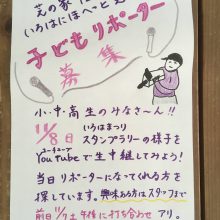 芝の家
いろはにほへっと
子どもリポーター
募集
小・中・高生のみなさ〜ん!!
11/8日 いろはまつり
スタンプラリーの様子を
ユーチューブ
YouTubeで生中継してみよう!
当日リポーターになってくれる方を
探しています。興味ある方はスタッフまで
前日11/7土 午後に打ち合わせアリ。